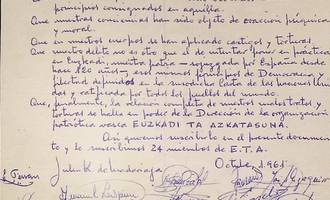 principios consignados en aquella.
Que nuestras conciencias han sido objeto de coacción psíquica
y moral.
Que en nuestros cuerpos se han aplicado castigos y torturas.
Que nuestro delito no es otro que el de intentar poner en práctica
en Euzkadi, nuestra patria - sojuzgada por España desde
hace 120 años -, esos mismos principios de Democracia, y
libertad defendidos en la susodicha Carta de las Naciones Uni-
das y ratificada por todos los pueblos del mundo.
Que, finalmente, la relación completa de nuestros malos tratos y
torturas se halla en poder de la Dirección de la organización
patriótica vasca EUZKADI TA AZKATASUNA.
Así queremos suscribirlo en el presente documen-
to y lo suscribimos 24 miembros de E.T.A.
Octubre, 1961
Julen K. de Madariaga